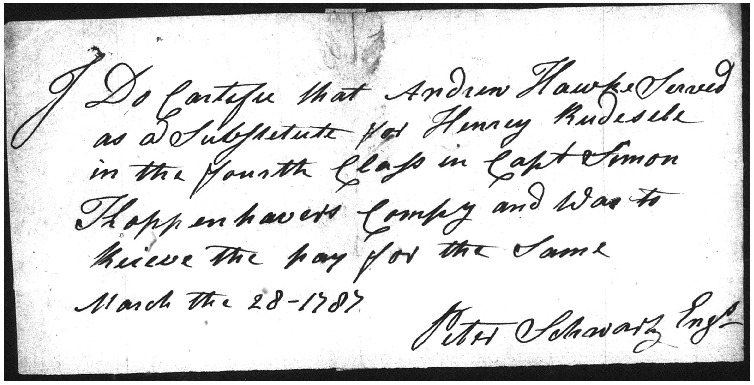 I Do Cartifie that Andrew Hawke Served
as a Substetute for Henrey Rudesele
in the fourth Class in Capt Simon
Thoppenhavers Compy and Was to
Recieve the pay for the Same
March the 28-1787
Peter Schwartz Engs